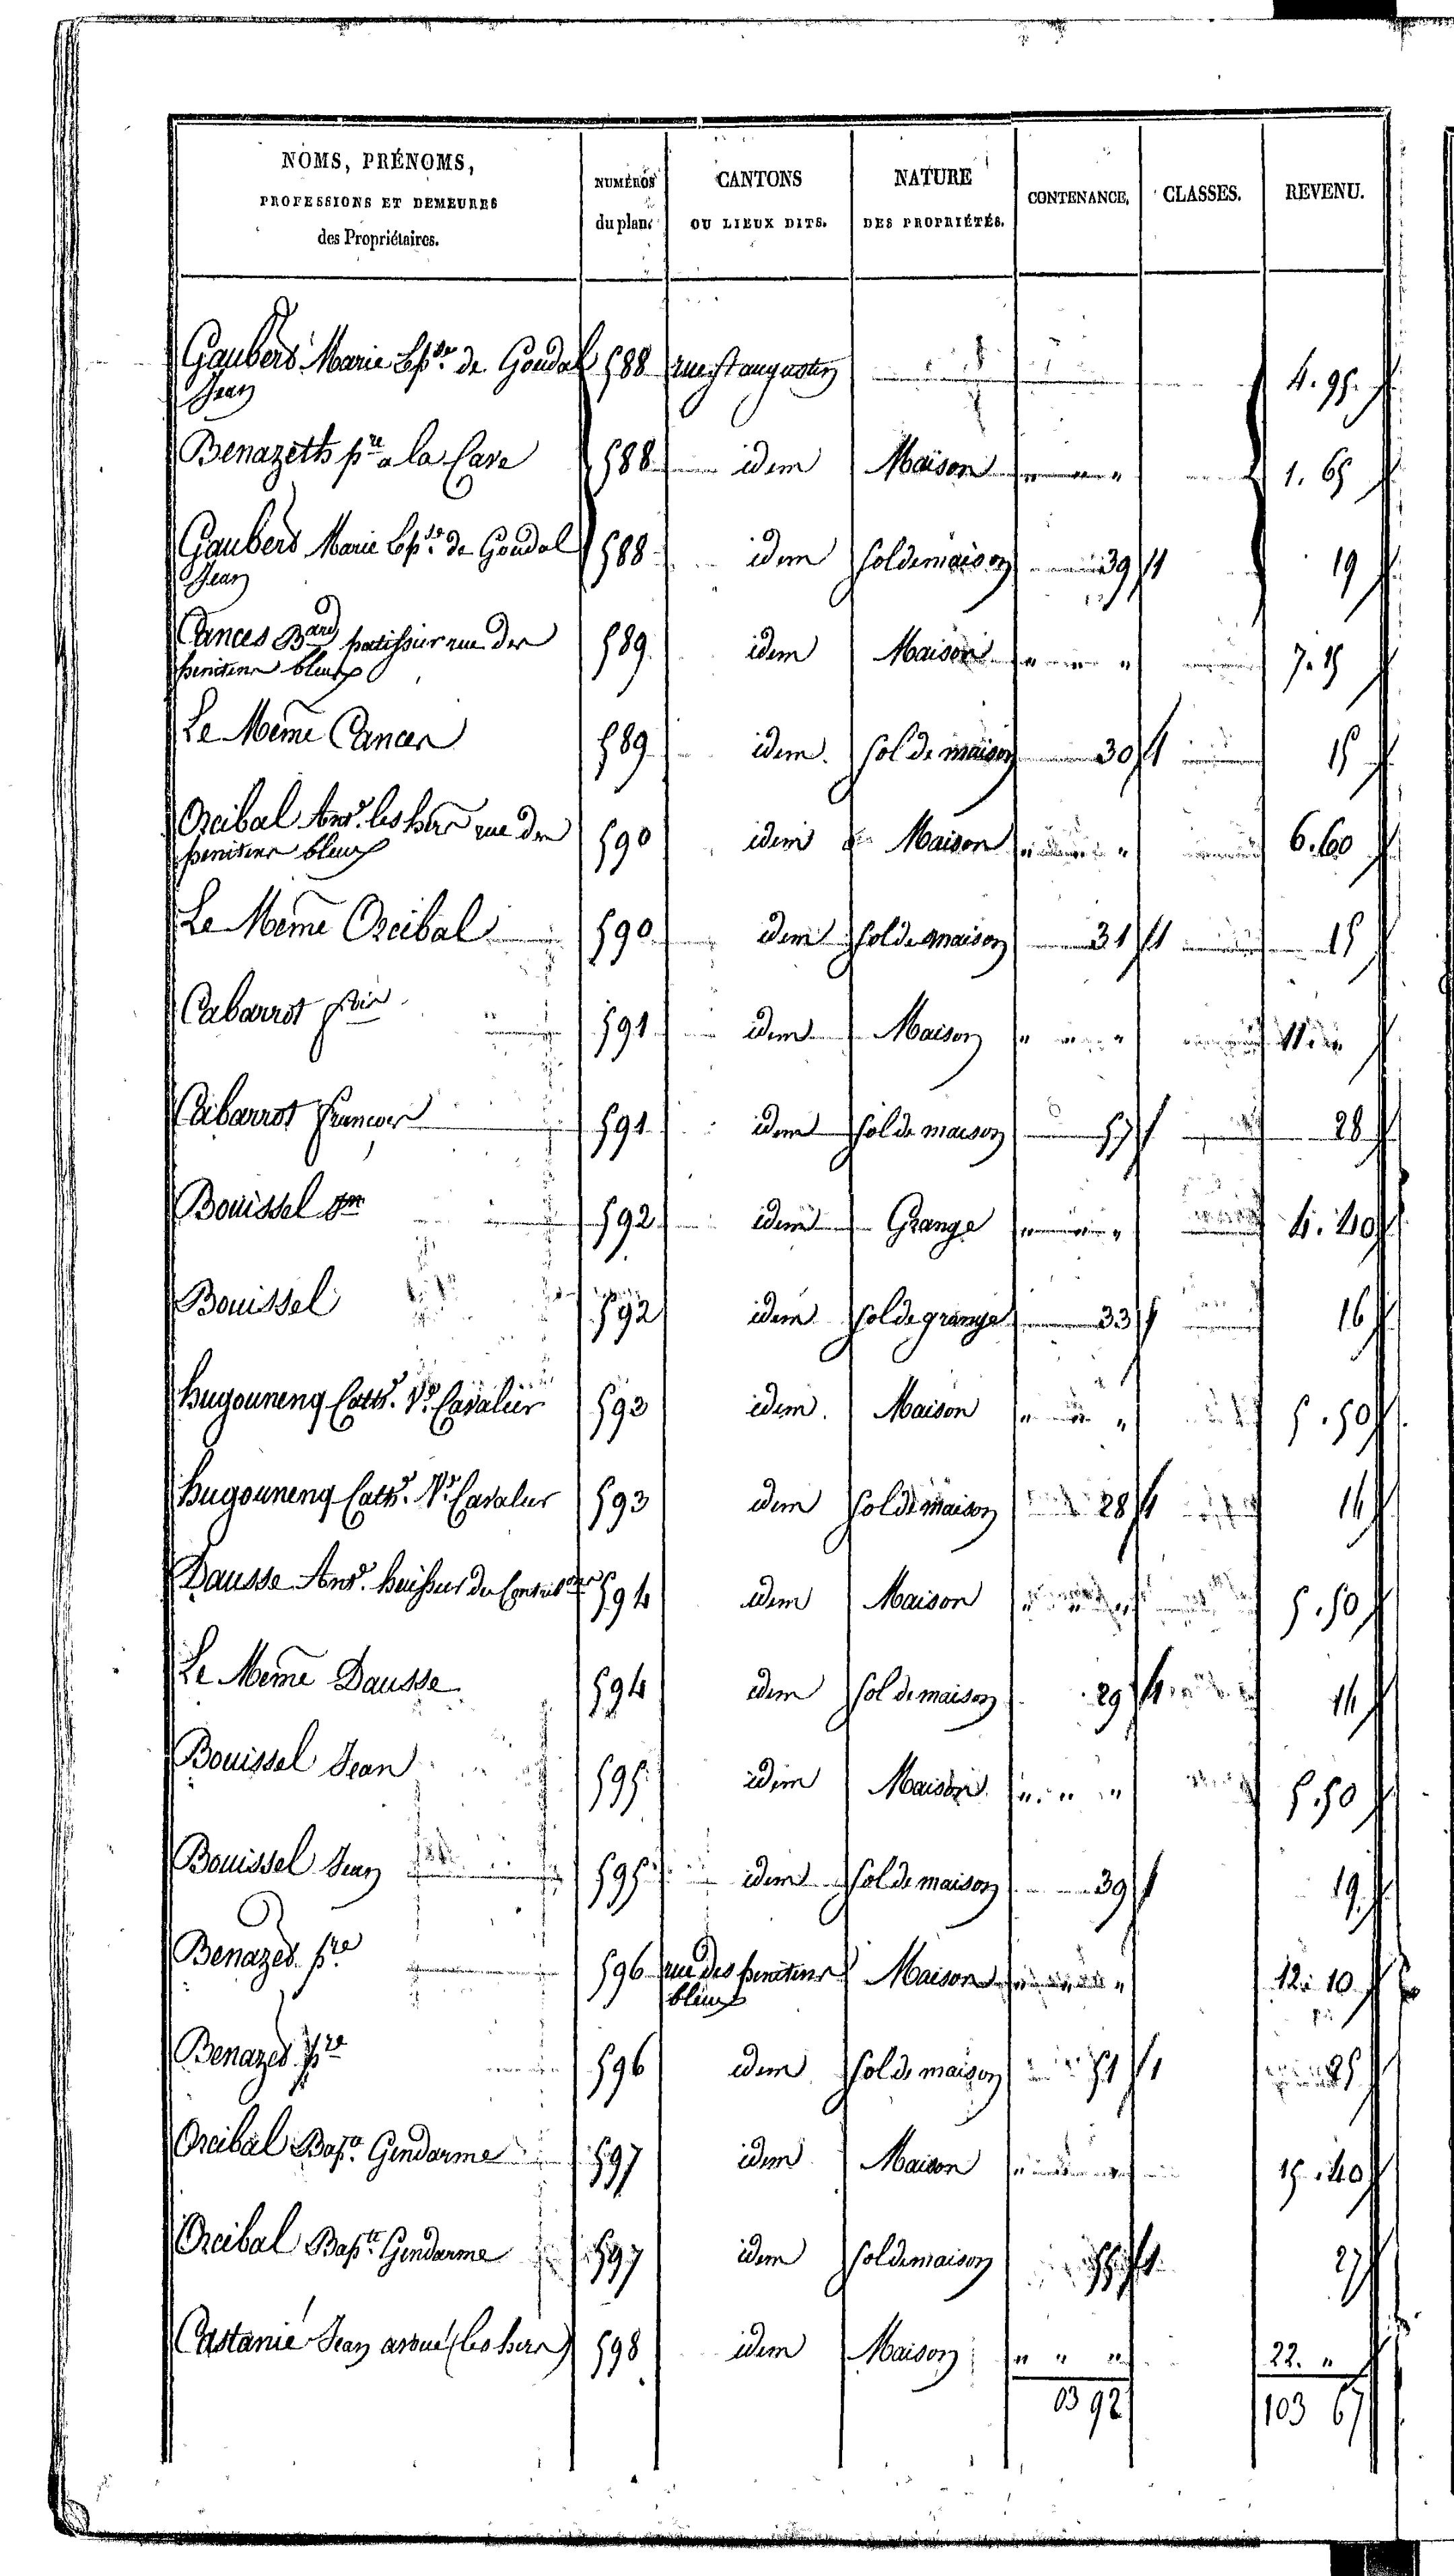 NOMS, PRÉNOMS, PROFESSIONS ET DEMEURES des Propriétaires. NUMÉROS du plan. CANTONS OU LIEUX DITS. NATURE DES PROPRIÉTÉS. CONTENANCE. CLASSES. REVENU.
Gaubert Marie Epse de Goudal 588 rue St augustin 4. 95
Jean
Benazeth pre a la Cave 588 idem Maison " " " 1. 65
Gaubert Marie Epse de Goudal 588 idem Sol de maison 39 1 19
Jean
Cances Bard patissier rue des 589 idem Maison " " " 7. 15
penitens bleux
Le Meme Cances 589 idem. Sol de maison 30 1 15
Orcibal Ant. les hers rue des 590 idem Maison " " " 6. 60
penitens bleux
Le Meme Orcibal 590 idem Sol de maison 31 1 15
Cabarrot 591 idem Maison " " " 11. "
Cabarrot francois 591 idem Sol de maison 57 1 28
Bouissel 592 idem Grange " " " 4. 40
Bouissel 592 idem Sol de grange 33 1 16
hugouneng Cath. Ve Cavalier 593 idem. Maison " " " 5. 50
hugouneng Cath. Ve Cavalier 593 idem Sol de maison 28 1 14
Dausse Ant. huissier du 594 idem Maison " " " 5. 50
Le Meme Dausse 594 idem Sol de maison 29 1 14
Bouissel Jean 595 idem Maison " " " 5. 50
Bouissel Jean 595 idem Sol de maison 39 1 19
Benazet pre 596 rue des penitens Maison " " " 12. 10
bleux
Benazet pre 596 idem Sol de maison 51 1 25
Orcibal Bapte Gendarme 597 idem Maison " " " 15. 40
Orcibal Bapte Gendarme 597 idem Sol de maison 55 1 27
Castanié Jean avoué (les hers) 598 idem Maison " " " 22. "
03 92 103 67